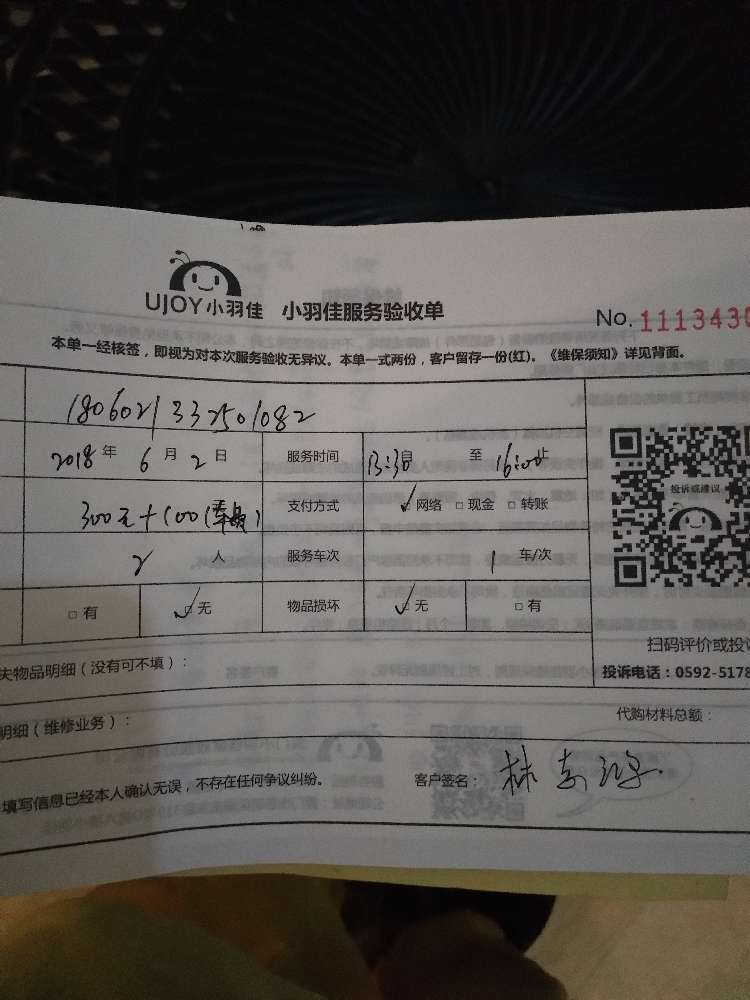 UJOY小羽佳 小羽佳服务验收单
No. 1113430
本单一经核签，即视为对本次服务验收无异议。本单一式两份，客户留存一份(红)。《维保须知》详见背面。
1806021332501082
2018年6月2日 服务时间 13:30 自 至 16:00 止
300元+100( ) 支付方式 ✓网络 □现金 □转账
2人 服务车次 1车/次
□有 ✓□无 物品损坏 ✓□无 □有
投诉或建议
扫码评价或投
失物品明细（没有可不填）：
投诉电话：0592-5178
明细（维修业务）：
代购材料总额：
填写信息已经本人确认无误，不存在任何争议纠纷。 客户签名：林